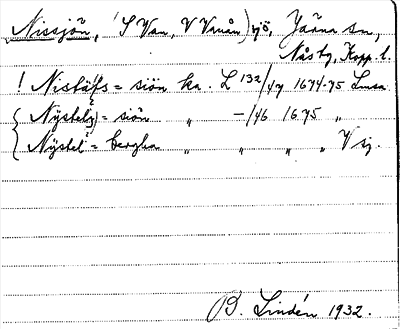 Nissjön, (S Van, V Vanån) sjö, Järna sn,
Nås tg, Kopp. l.
! Nistäfs = siön ka. L 132/47 1674-75 Lmsa
Nÿstelz = siön " -/46 1675 "
Nÿstel = bergha " " " " V sj.
B. Lindén 1932.